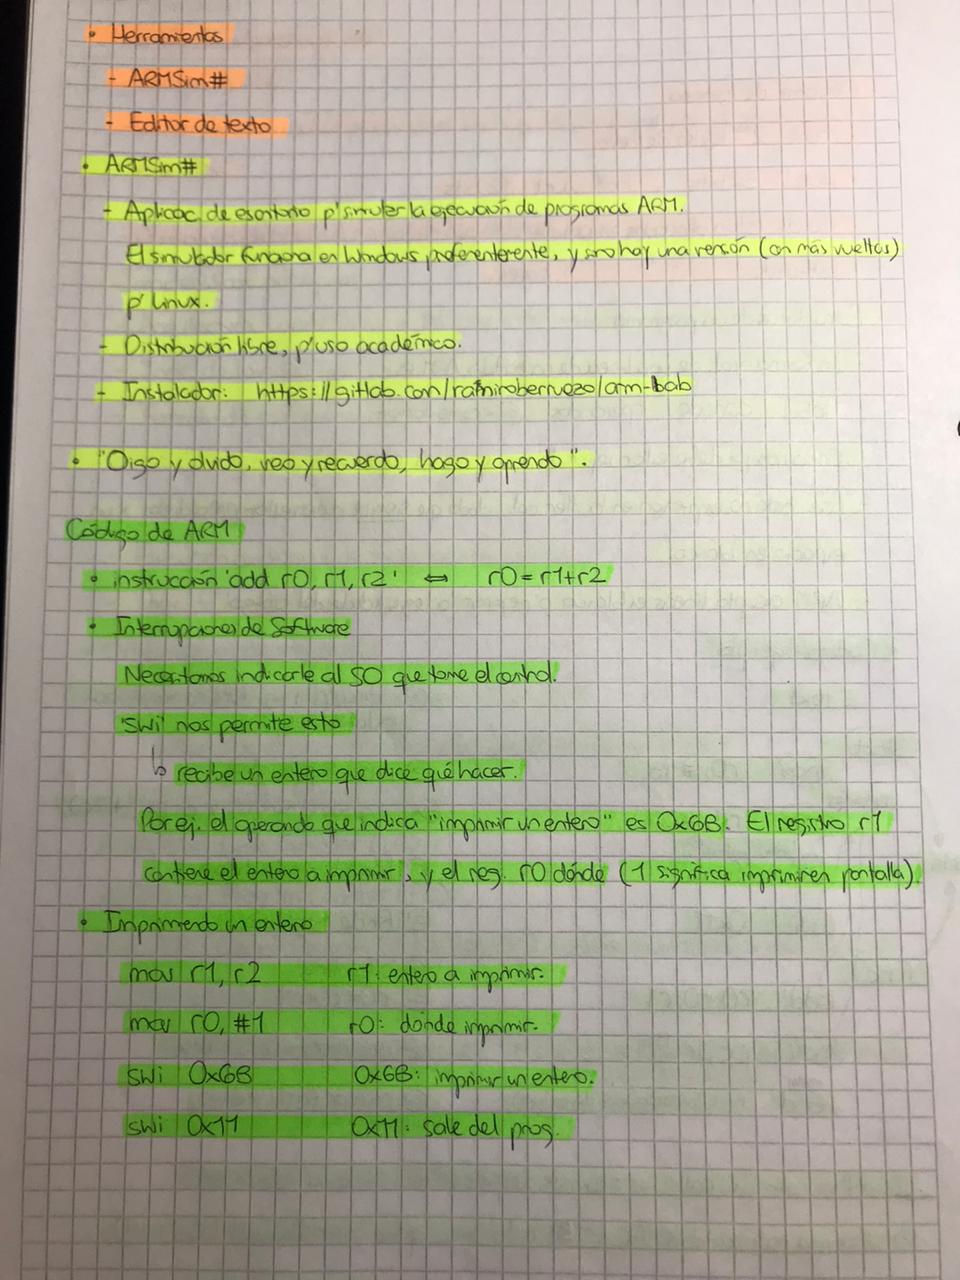 • Herramientas
- ARMSim#
- Editor de texto
• ARMSim#
- Aplicac. de escritorio p' simular la ejecución de programas ARM.
El simulador funciona en Windows preferentemente, y sino hay una versión (con más vueltas)
p' Linux.
- Distribución libre, p' uso académico.
- Instalador: https://gitlab.com/ramirobernezo/arm-bab
• "Oigo y olvido, veo y recuerdo, hago y aprendo".
Código de ARM
• instrucción 'add r0, r1, r2' ⇔ r0 = r1+r2
• Interrupciones de Software
Necesitamos indicarle al SO que tome el control.
'swi' nos permite esto
↳ recibe un entero que dice qué hacer.
Por ej. el operando que indica "imprimir un entero" es 0x6B. El registro r1
contiene el entero a imprimir, y el reg. r0 dónde (1 significa imprimir en pantalla).
• Imprimiendo un entero
mov r1, r2 r1: entero a imprimir.
mov r0, #1 r0: dónde imprimir.
swi 0x6B 0x6B: imprimir un entero.
swi 0x11 0x11: sale del prog.